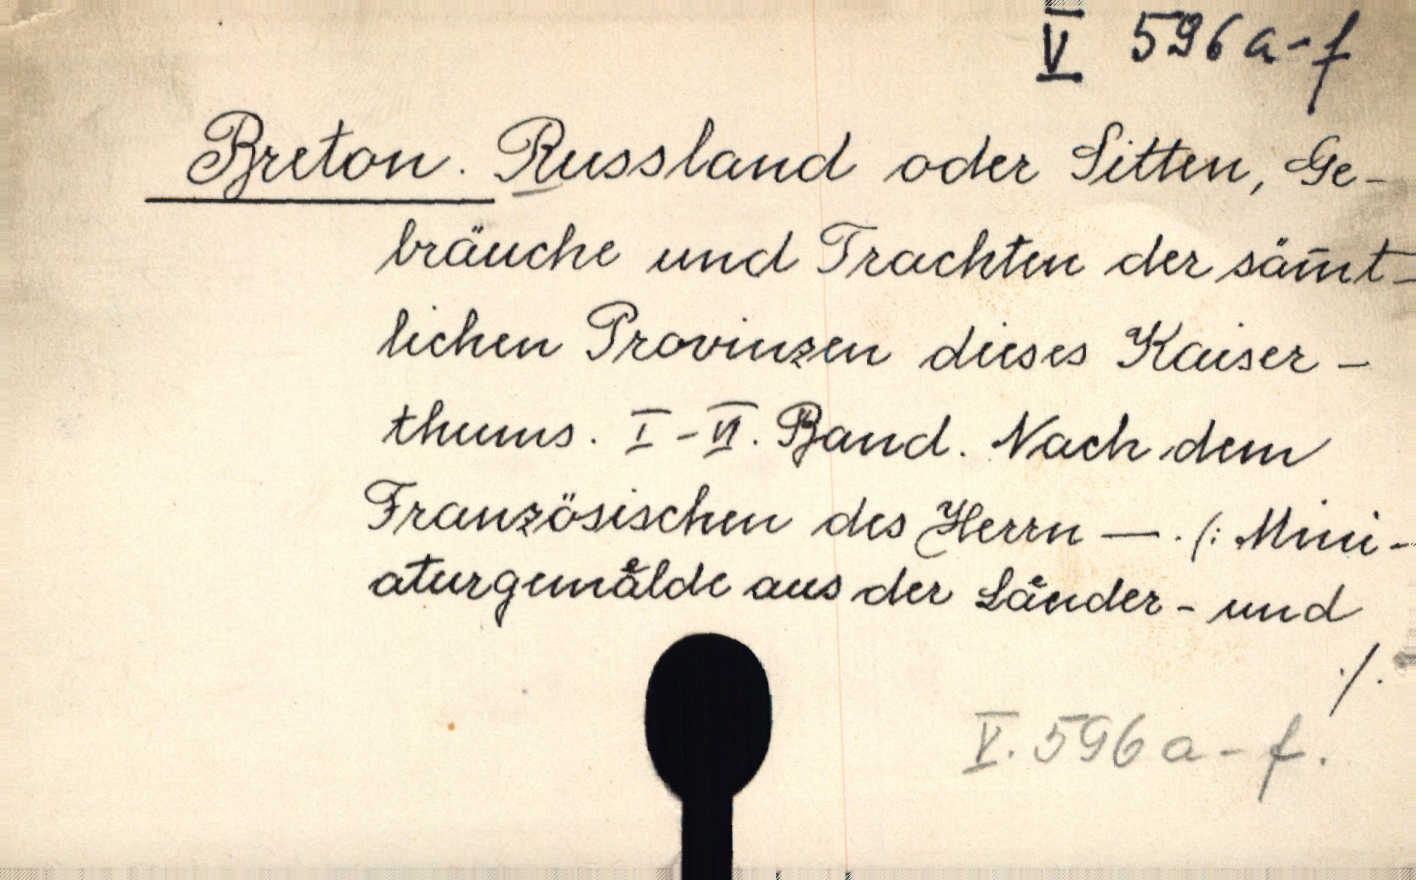 V 596 a-f
Breton. Russland oder Sitten, Ge-
bräuche und Trachten der säm̄t-
lichen Provinzen dieses Kaiser-
thums. I-VI. Band. Nach dem
Französischen des Herrn —. (: Mini-
aturgemålde aus der Länder- und
./.
V. 596 a-f.